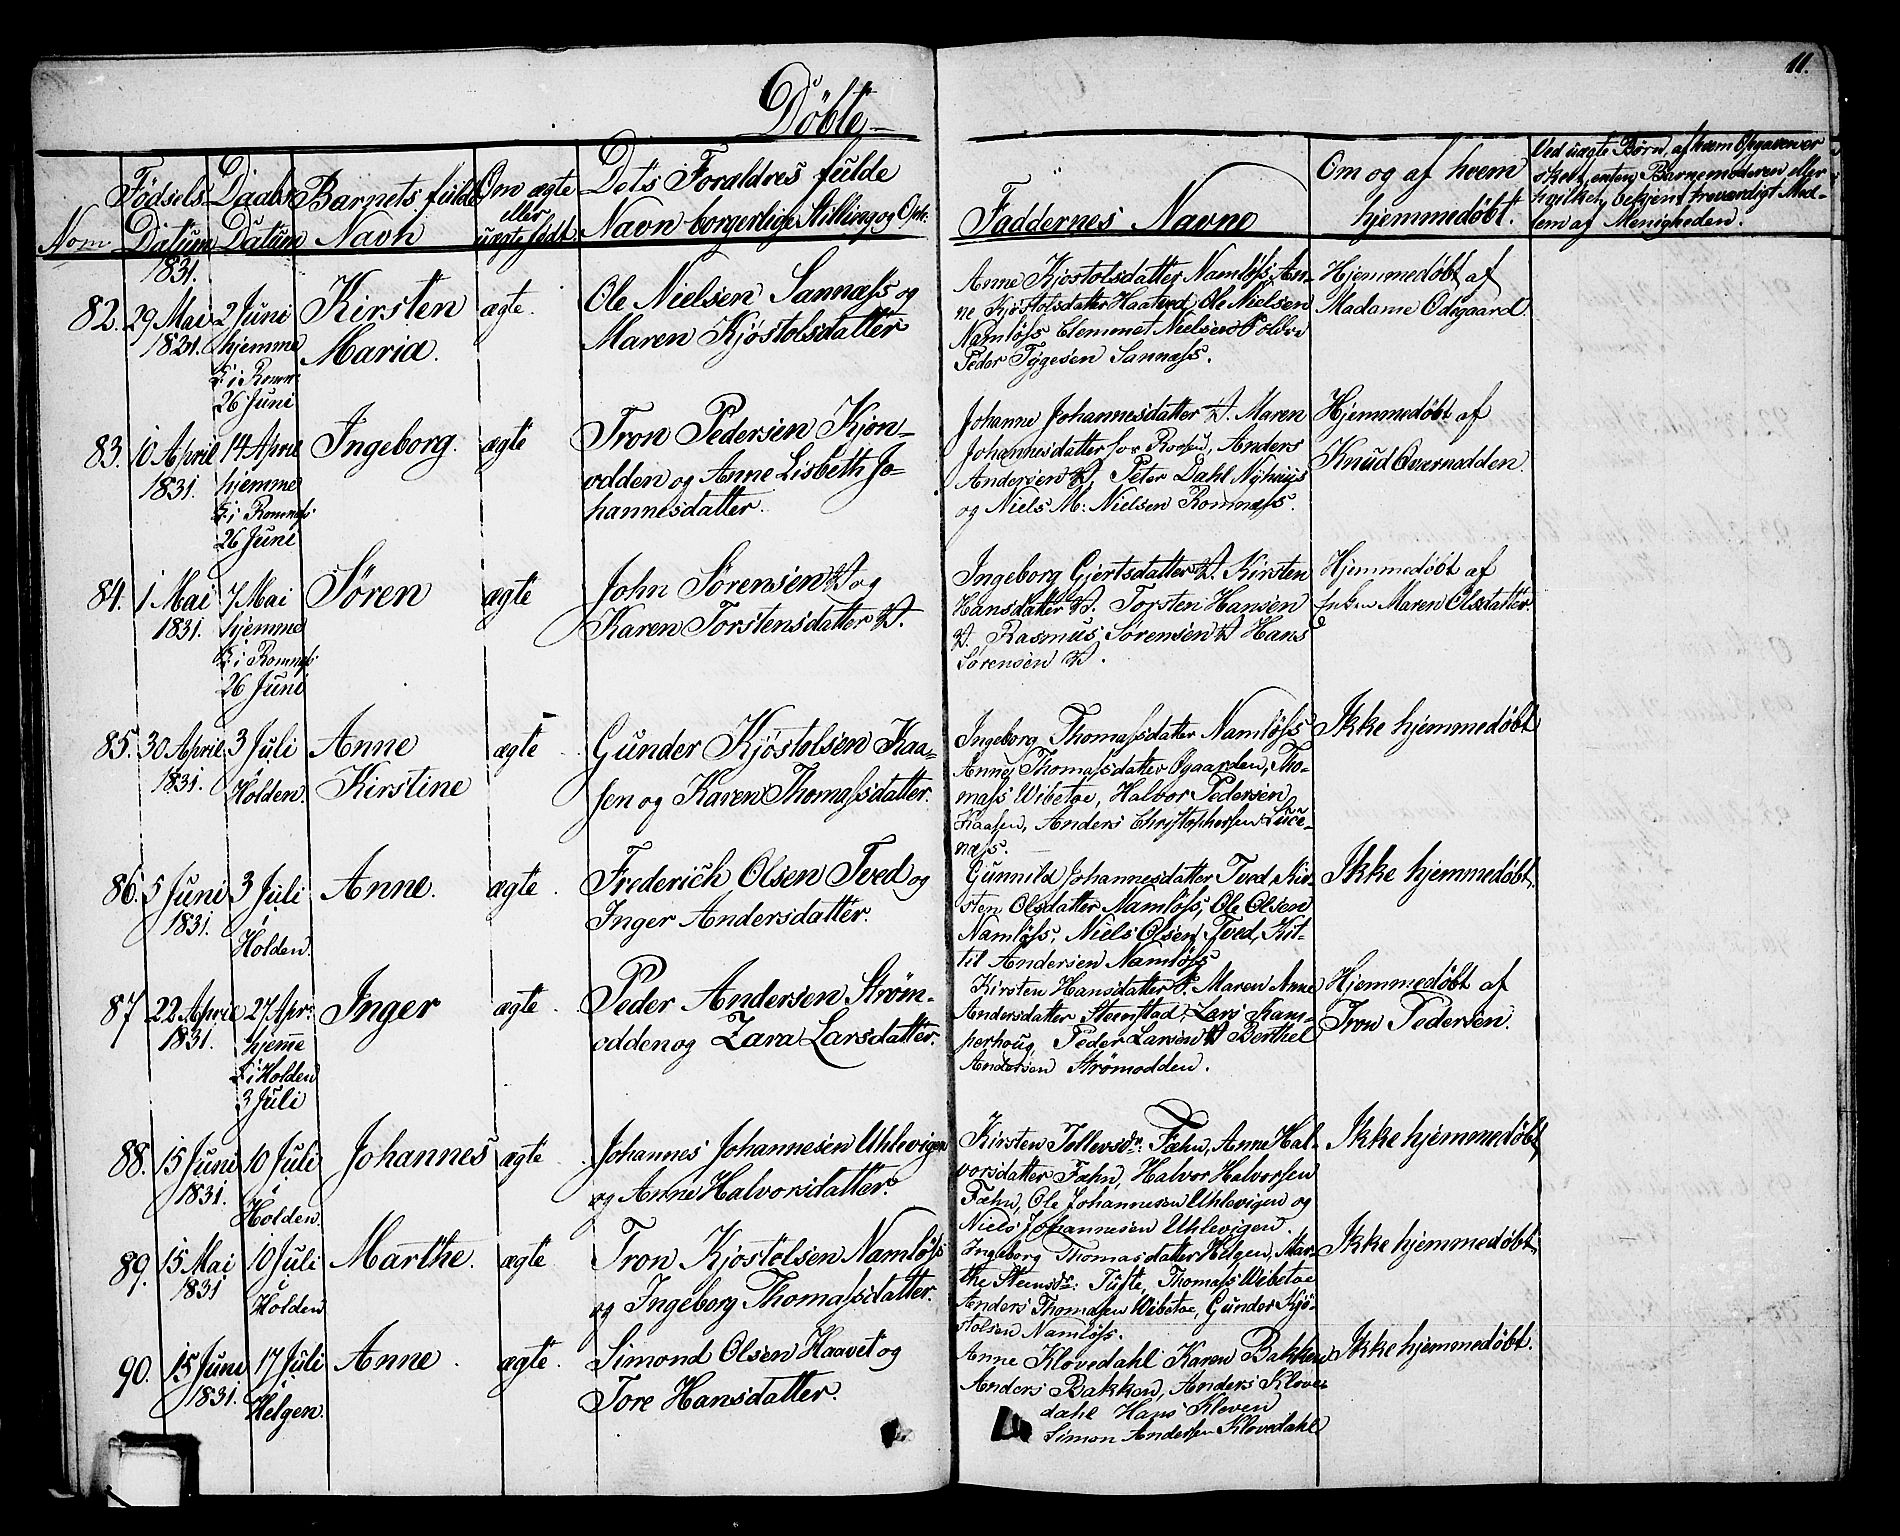 11.
Döbte
Nom
Födsels
Datum
Daabs
Datum
Barnets fulde
Navn
Om ægte
eller
uægte födt.
Dets Foraldres fulde
Navn borgerlige Stilling og
Faddernes Navne
Om og af hvem
hjemmedöbt.
Ved uægte Børn, af hvem Opgaven er
skeet, enten Barnemoderen eller
hvilket bekjent troværdigt Med-
lem af Menigheden.
1831.
82. 29 Mai
1831.
2 Juni
hjemme
K: i Romn:
26 Juni
Kirsten
Maria.
ægte.
Ole Nielsen Sannæss og
Maren Kjøstolsdatter
Anne Kjøstolsdatter Namløss, An-
ne Kjøstolsdatter Haatved, Ole Nielsen
Namløss Clemmet Nielsen
Peder Tygesen Sannæss.
Hjemmedøbt af
Madame Odegaard.
83. 10 April
1831.
14 April
hjemme
K: i Romnæs:
26 Juni
Ingeborg.
ægte
Tron Pedersen Kjon-
odden og Anne Lisbeth Jo-
hannesdatter.
Johanne Johannesdatter Maren
Johannesdatter Anders
Andersen Peter Dahl Nyhuus
og Niels M: Nielsen Romnæss.
Hjemmedøbt af
Knud Oværnødden
84. 1 Mai
1831.
7 Mai
hjemme
K: i Romnæs:
26 Juni
Søren
ægte
John Sörensen og
Karen Torstensdatter
Ingeborg Gjertsdatter Kirsten
Hansdatter Torsten Hansen
Rasmus Sörensen Hans
Sörensen
Hjemmedøbt af
Enken Maren Olsdatter.
85. 30 April
1831.
3 Juli
i
Holden.
Anne
Kirstine
ægte
Gunder Kjöstolsen Kaa-
sen og Karen Thomassdatter.
Ingeborg Thomassdatter Namløss
Anne Thomassdatter Øgaarden, Tho-
mass Wibetoe, Halvor Pedersen
Kaasen, Anders Christophersen Luce-
næss.
Ikke hjemmedøbt
86. 5 Juni
1831.
3 Juli
i
Holden.
Anne.
ægte.
Frederich Olsen Tved og
Inger Andersdatter.
Gunnild Johannesdatter Tved, Kir-
sten Olsdatter Namløss, Ole Olsen
Namløss, Niels Olsen Tved, Kit-
til Andersen Namløss
Ikke hjemmedøbt.
87 22 April
1831.
27 Apr:
hjeme
K: i Holden
3 Juli
Inger
ægte.
Peder Andersen Strøm-
odden og Zara Larsdatter.
Kirsten Hansdatter Maren Anne
Andersdatter Steenstad, Lars Kam-
perhoug Peder Larsen Berthel
Andersen Strømodden.
Hjemmedøbt af
Tron Pedersen.
88. 15 Juni
1831.
10 Juli
i
Holden.
Johannes
ægte
Johannes Johannesen Uhlevigen
og Anne Halvorsdatter.
Kirsten Tollevsdr: Fæhn, Anne Hal-
vorsdatter Fæhn, Halvor Halvorsen
Fæhn, Ole Johannesen Uhlevigen og
Niels Johannesen Uhlevigen
Ikke hjemmedøbt
89. 15 Mai
1831
10 Juli
i
Holden
Marthe.
ægte
Tron Kjøstolsen Namløss
og Ingeborg Thomassdatter.
Ingeborg Thomasdatter Helgen, Mar-
the Steensdr: Tufte, Thomass Wibetoe
Anders Thomasen Wibetoe, Gunder Kjö-
stolsen Namløss.
Ikke hjemmedøbt.
90. 15 Juni
1831.
17 Juli
i
Helgen.
Anne.
ægte.
Simond Olsen Haavet og
Tore Hansdatter.
Anne Klovedahl Karen Bakken
Anders Bakken, Anders Klove-
dahl Hans Kleven
Simon Andersen Klovedahl
Ikke hjemmedøbt.